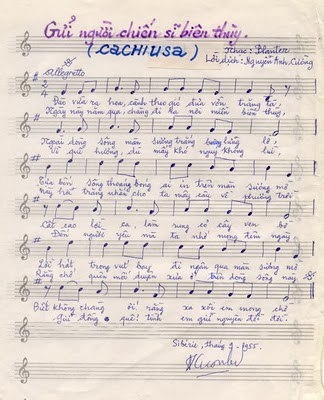 Gửi người chiến sĩ biên thùy.
(CACHIUSA)
Nhạc: Blanter
Lời dịch: Nguyễn Anh Cường
Allegretto
Đào vừa ra hoa, cành theo gió đưa vờn trăng tà,
Ngày này năm qua, chàng đi ra nơi miền biên thùy,
Ngoài dòng sông màn sương trắng buông lững lờ,
Vì quê hương, dù mấy khó nguy không lui,
Từa bên sông thoáng bóng ai in trên màn sương mờ
này ánh trăng nhắn cho ta mấy câu về phương trời
Cất cao lời ca, làm rung cỏ cây ven bờ
Đến người yêu mà ta nhớ mong đêm ngày
Lời hát trong vút bay đi ngàn qua màn sương mờ
Rằng chớ quên mối duyên xưa ở bên dòng sông này
Biết không chàng ơi! rằng xa xôi em mong chờ
Giữ đồng quê! tình em giữ nguyên đời đời.
Sibérie, tháng 9 - 1955.